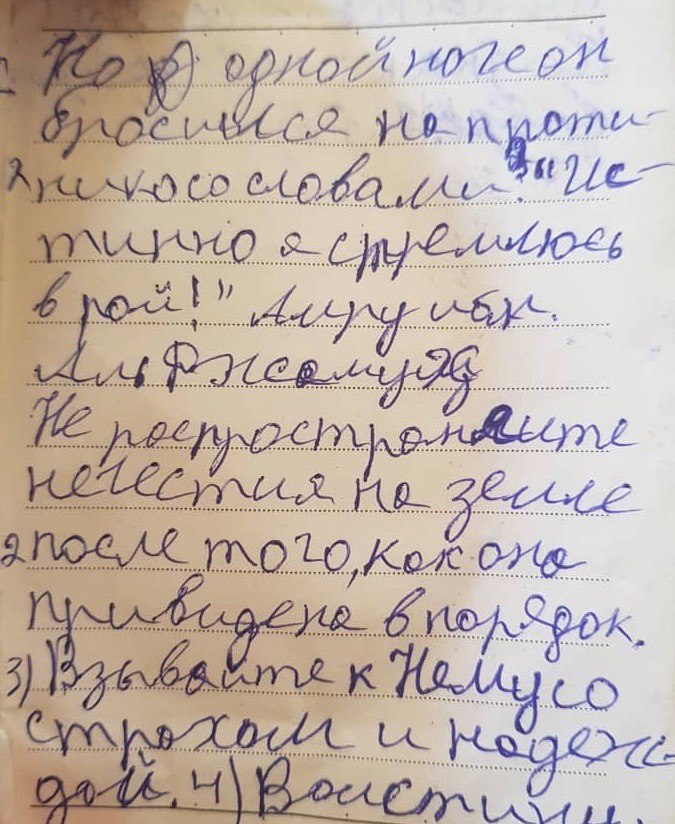 На одной ноге он
бросился на проти-
никосо словами: "Ис-
тинно я стремлюсь
в рай!" Амру ибн.
Аль Джамухд
Не распространяите
нечестия на земле
2 после того, как она
привидена в порядок.
3) Взывайте к Нему со
страхом и надеж-
дой. 4) Воистину.